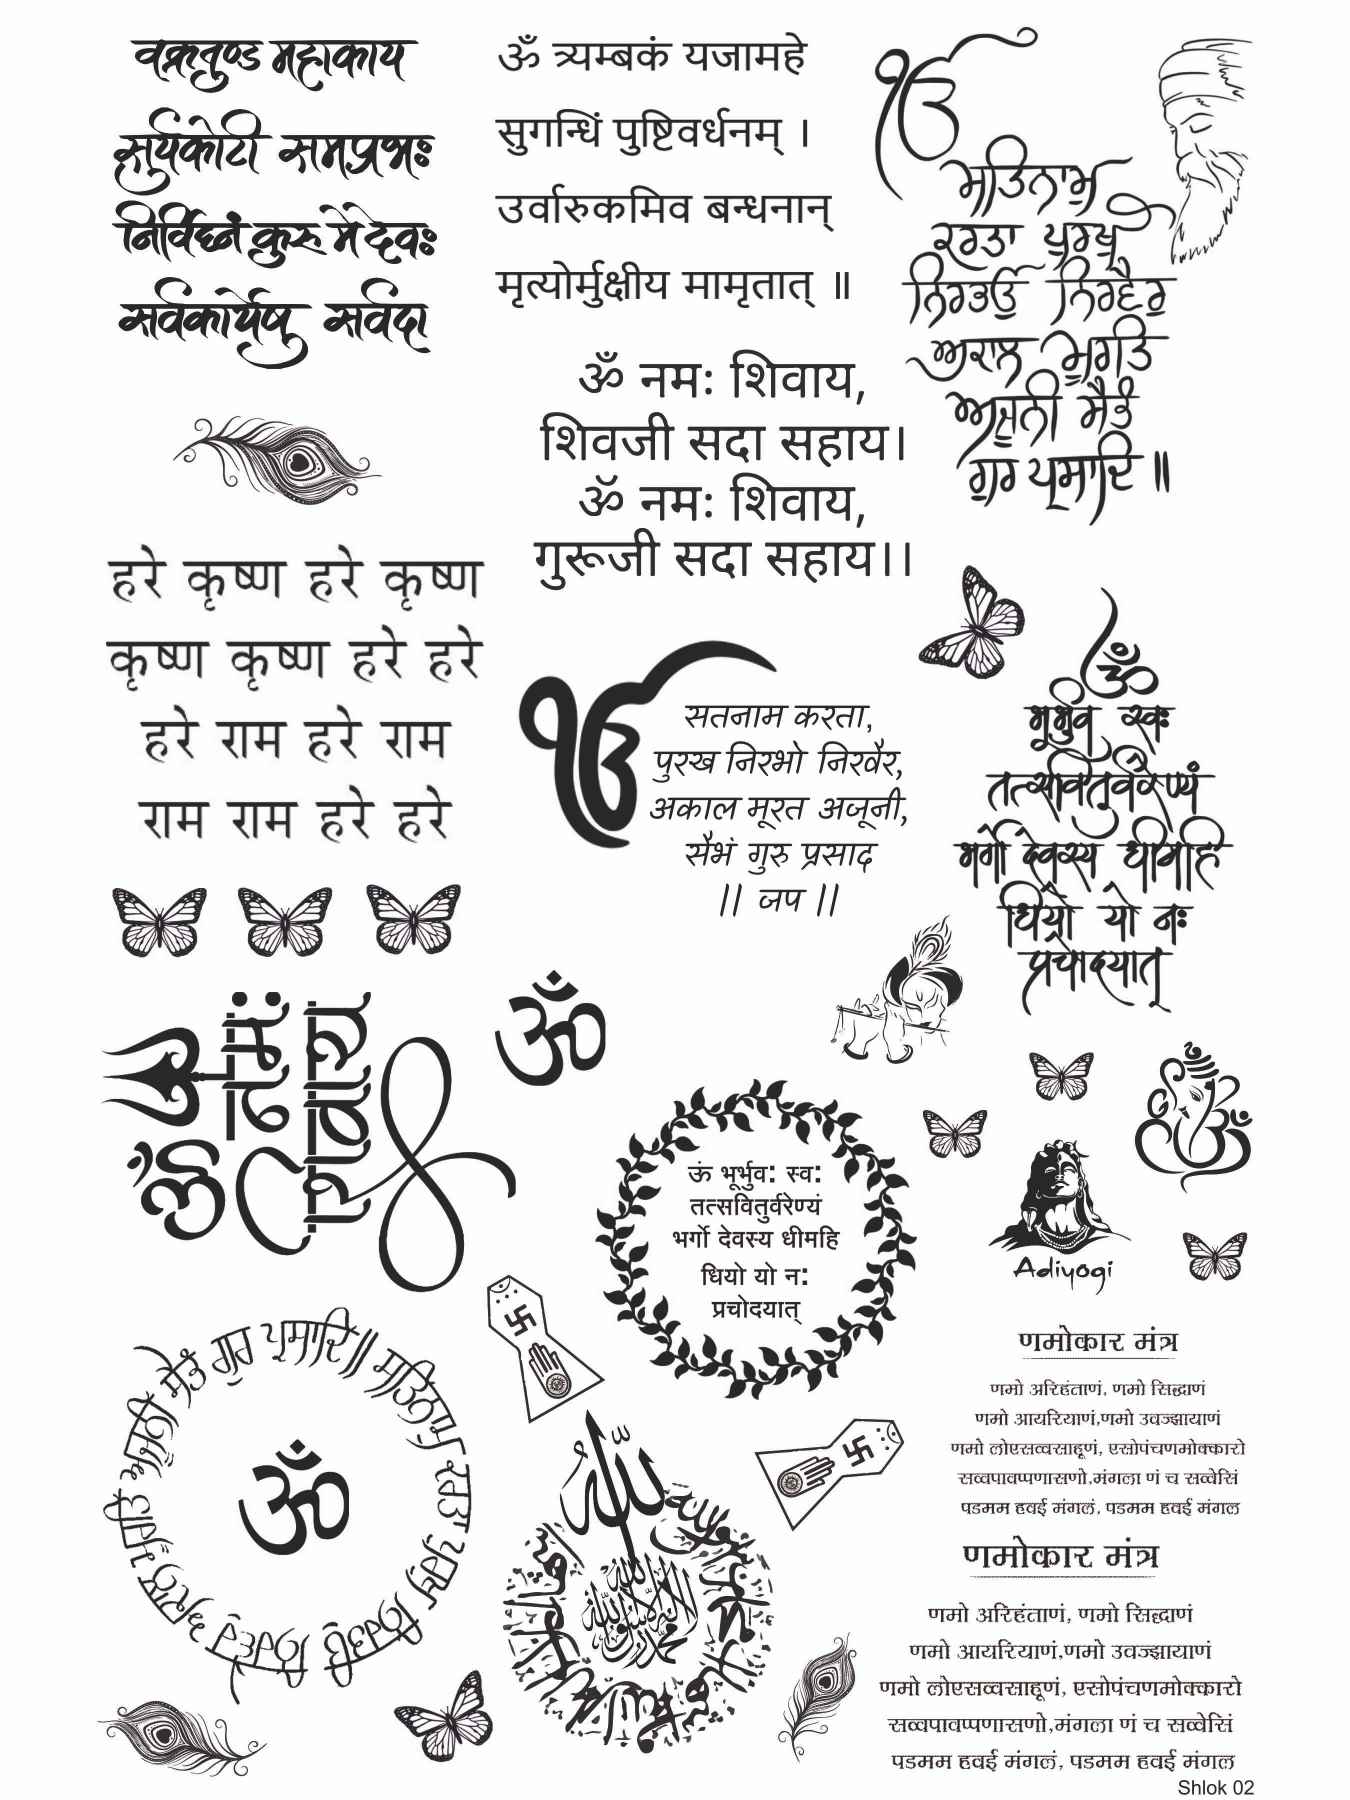 वक्रतुण्ड महाकाय
सुर्यकोटी समप्रभः
निर्विघ्नं कुरु मे देवः
सर्वकार्येषु सर्वदा
ॐ त्र्यम्बकं यजामहे
सुगन्धिं पुष्टिवर्धनम् ।
उर्वारुकमिव बन्धनान्
मृत्योर्मुक्षीय मामृतात् ॥
ॐ नमः शिवाय,
शिवजी सदा सहाय।
ॐ नमः शिवाय,
गुरूजी सदा सहाय।।
ੴ
ਸਤਿਨਾਮੁ
ਕਰਤਾ ਪੁਰਖੁ
ਨਿਰਭਉ ਨਿਰਵੈਰੁ
ਅਕਾਲ ਮੂਰਤਿ
ਅਜੂਨੀ ਸੈਭੰ
ਗੁਰ ਪ੍ਰਸਾਦਿ ॥
हरे कृष्ण हरे कृष्ण
कृष्ण कृष्ण हरे हरे
हरे राम हरे राम
राम राम हरे हरे
ੴ
सतनाम करता,
पुरख निरभो निरवैर,
अकाल मूरत अजूनी,
सैभं गुरु प्रसाद
।। जप ।।
ॐ
भूर्भुव स्वः
तत्सवितुर्वरेण्यं
भर्गो देवस्य धीमहि
धियो यो नः
प्रचोदयात्
ॐ
नमः
शिवाय
ॐ
ऊं भूर्भुवः स्वः
तत्सवितुर्वरेण्यं
भर्गो देवस्य धीमहि
धियो यो नः
प्रचोदयात्
Adiyogi
ਸਤਿਨਾਮੁ ਕਰਤਾ ਪੁਰਖੁ ਨਿਰਭਉ ਨਿਰਵੈਰੁ ਅਕਾਲ ਮੂਰਤਿ ਅਜੂਨੀ ਸੈਭੰ ਗੁਰ ਪ੍ਰਸਾਦਿ॥
ॐ
الله
لا إله إلا الله محمد رسول الله
णमोकार मंत्र
णमो अरिहंताणं, णमो सिद्धाणं
णमो आयरियाणं,णमो उवज्झायाणं
णमो लोएसव्वसाहूणं, एसोपंचणमोक्कारो
सव्वपावप्पणासणो,मंगला णं च सव्वेसिं
पडमम हवई मंगलं, पडमम हवई मंगल
णमोकार मंत्र
णमो अरिहंताणं, णमो सिद्धाणं
णमो आयरियाणं,णमो उवज्झायाणं
णमो लोएसव्वसाहूणं, एसोपंचणमोक्कारो
सव्वपावप्पणासणो,मंगला णं च सव्वेसिं
पडमम हवई मंगलं, पडमम हवई मंगल
Shlok 02